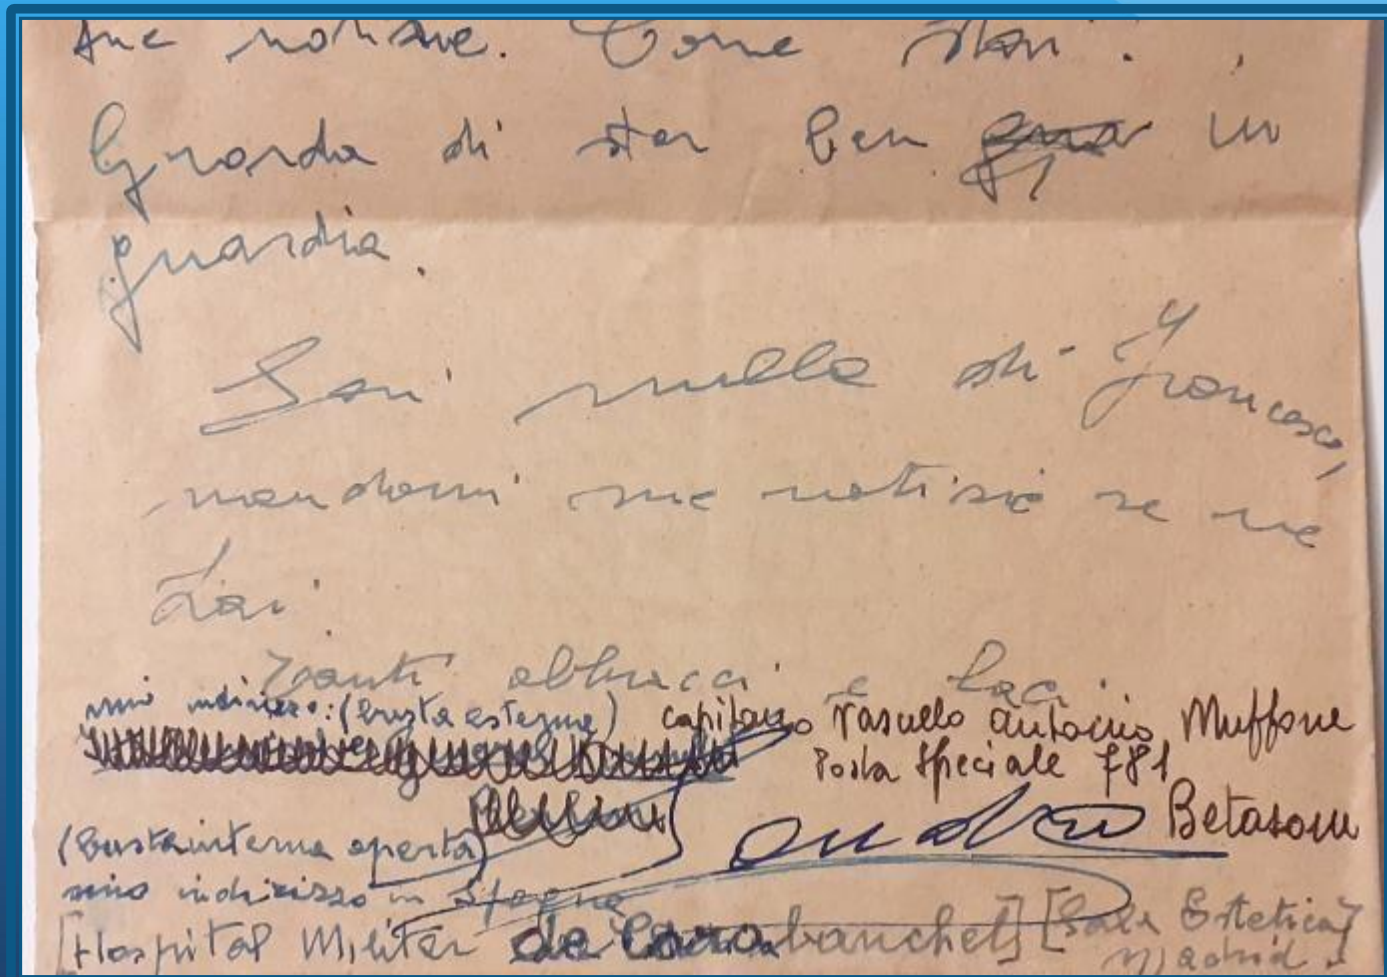 tue notizie. Come stai?
Guarda di star ben in
guardia.
Sai nulla di Francesco,
mandami sue notizie se ne
hai.
Tanti abbracci e baci
mio indirizzo: (busta esterna) capitano Vasello Antonio Muffone
Posta Speciale 781
Sandro Betasom
(busta interna aperta)
mio indirizzo in Spagna
[Hospital Militar de Carabanchel] [Sala Estetica]
Madrid